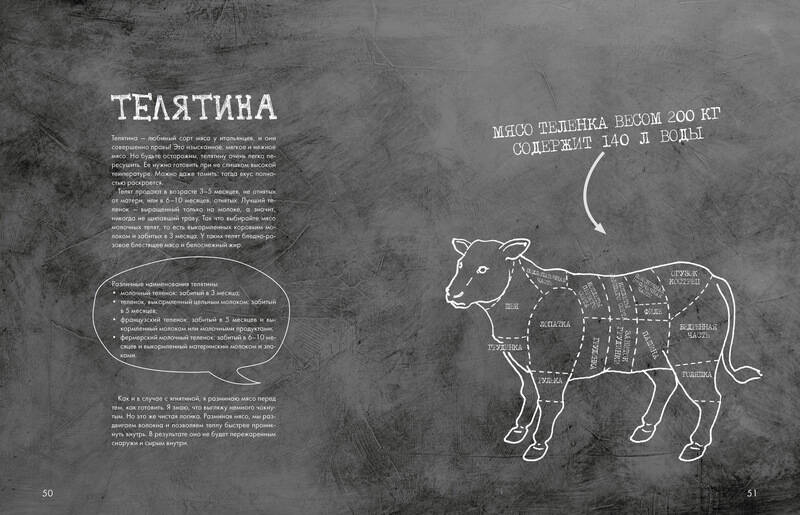 ТЕЛЯТИНА
Телятина — любимый сорт мяса у итальянцев, и они
совершенно правы! Это изысканное, мягкое и нежное
мясо. Но будьте осторожны, телятину очень легко пе-
ресушить. Ее нужно готовить при не слишком высокой
температуре. Можно даже томить: тогда вкус полно-
стью раскроется.
Телят продают в возрасте 3–5 месяцев, не отнятых
от матери, или в 6–10 месяцев, отнятых. Лучший те-
ленок — выращенный только на молоке, а значит,
никогда не щипавший траву. Так что выбирайте мясо
молочных телят, то есть выкормленных коровьим мо-
локом и забитых в 3 месяца. У таких телят бледно-ро-
зовое блестящее мясо и белоснежный жир.
Различные наименования телятины:
• молочный теленок: забитый в 3 месяца;
• теленок, выкормленный цельным молоком: забитый
в 5 месяцев;
• французский теленок: забитый в 5 месяцев и вы-
кормленный молоком или молочными продуктами;
• фермерский молочный теленок: забитый в 6–10 ме-
сяцев и выкормленный материнским молоком и зла-
ками.
Как и в случае с ягнятиной, я разминаю мясо перед
тем, как готовить. Я знаю, что выгляжу немного чокну-
тым. Но это же чистая логика. Разминая мясо, мы раз-
двигаем волокна и позволяем теплу быстрее проник-
нуть внутрь. В результате оно не будет пережаренным
снаружи и сырым внутри.
50
МЯСО ТЕЛЕНКА ВЕСОМ 200 КГ
СОДЕРЖИТ 140 Л ВОДЫ
ОГУЗОК
КОСТРЕЦ
ШЕЯ
ЛОПАТКА
ФИЛЕ
БЕДРЕННАЯ
ЧАСТЬ
ГРУДИНКА
ГРУДИНКА
ПАШИНА
ГОЛЯШКА
РУЛЬКА
51